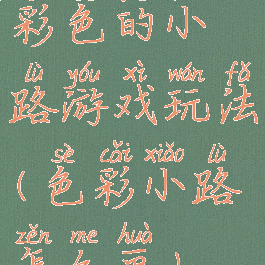 彩色的小
lù yóu xì wán fǎ
路游戏玩法
sè cǎi xiǎo lù
(色彩小路
zěn me huà
怎么画)